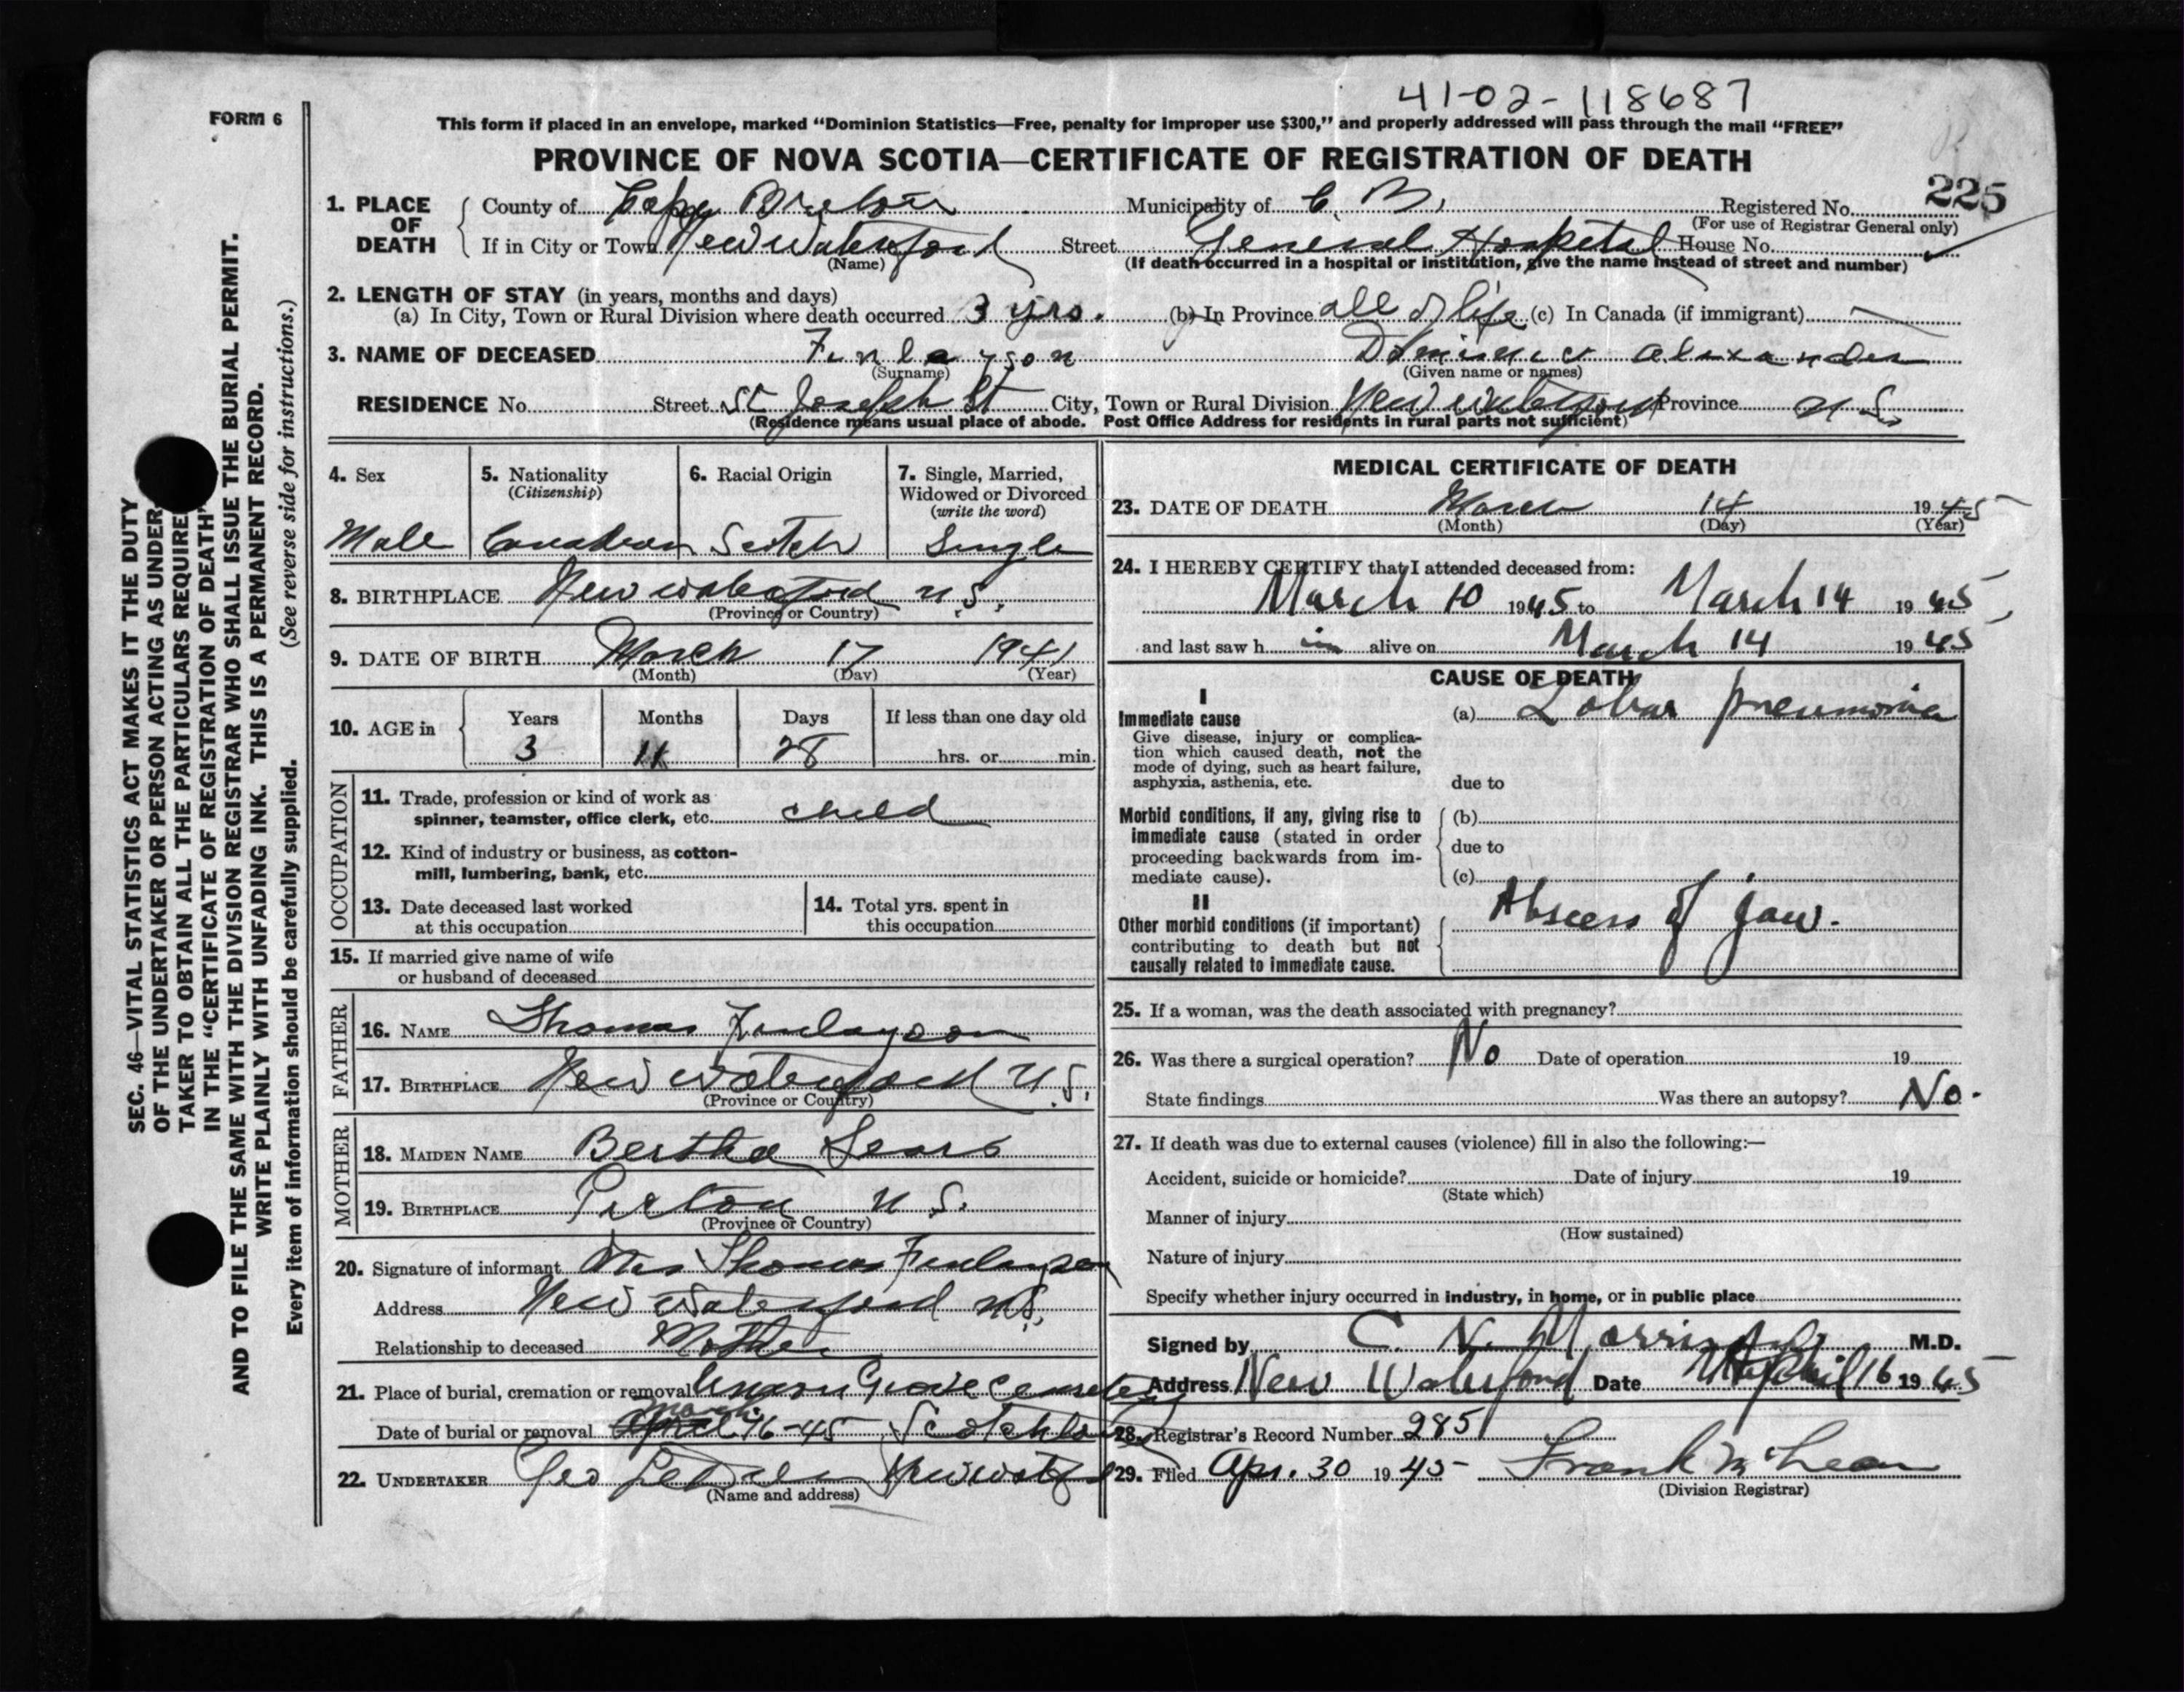 41-02-118687
FORM 6
This form if placed in an envelope, marked “Dominion Statistics—Free, penalty for improper use $300,” and properly addressed will pass through the mail “FREE”
PROVINCE OF NOVA SCOTIA—CERTIFICATE OF REGISTRATION OF DEATH
225
1. PLACE OF DEATH County of Cape Breton Municipality of C. B. Registered No.
(For use of Registrar General only)
If in City or Town New Waterford Street General Hospital House No.
(Name) (If death occurred in a hospital or institution, give the name instead of street and number)
2. LENGTH OF STAY (in years, months and days)
(a) In City, Town or Rural Division where death occurred 3 yrs. (b) In Province all of life (c) In Canada (if immigrant)
3. NAME OF DECEASED Finlayson Dominic Alexander
(Surname) (Given name or names)
RESIDENCE No. Street St Joseph St City, Town or Rural Division New Waterford Province N S
(Residence means usual place of abode. Post Office Address for residents in rural parts not sufficient)
4. Sex 5. Nationality 6. Racial Origin 7. Single, Married,
(Citizenship) Widowed or Divorced
(write the word)
Male Canadian Scotch Single
8. BIRTHPLACE New Waterford N.S.
(Province or Country)
9. DATE OF BIRTH March 17 1941
(Month) (Day) (Year)
10. AGE in Years Months Days If less than one day old
3 11 28 hrs. or min.
OCCUPATION
11. Trade, profession or kind of work as
spinner, teamster, office clerk, etc. child
12. Kind of industry or business, as cotton-
mill, lumbering, bank, etc.
13. Date deceased last worked 14. Total yrs. spent in
at this occupation this occupation
15. If married give name of wife
or husband of deceased
FATHER
16. NAME Thomas Finlayson
17. BIRTHPLACE New Waterford N.S.
(Province or Country)
MOTHER
18. MAIDEN NAME Bertha Sears
19. BIRTHPLACE Pictou N S.
(Province or Country)
20. Signature of informant Mrs Thomas Finlayson
Address New Waterford N.S.
Relationship to deceased Mother
21. Place of burial, cremation or removal Union Grove Cemetery
March
Date of burial or removal April 16-45
22. UNDERTAKER Geo
(Name and address)
MEDICAL CERTIFICATE OF DEATH
23. DATE OF DEATH March 14 1945
(Month) (Day) (Year)
24. I HEREBY CERTIFY that I attended deceased from:
March 10 1945 to March 14 1945
and last saw h im alive on March 14 1945
CAUSE OF DEATH
I
Immediate cause (a) Lobar pneumonia
Give disease, injury or complica-
tion which caused death, not the
mode of dying, such as heart failure,
asphyxia, asthenia, etc. due to
Morbid conditions, if any, giving rise to (b)
immediate cause (stated in order due to
proceeding backwards from im-
mediate cause). (c)
II
Abscess of jaw.
Other morbid conditions (if important)
contributing to death but not
causally related to immediate cause.
25. If a woman, was the death associated with pregnancy?
26. Was there a surgical operation? No Date of operation 19
State findings Was there an autopsy? No.
27. If death was due to external causes (violence) fill in also the following:—
Accident, suicide or homicide? Date of injury 19
(State which)
Manner of injury
(How sustained)
Nature of injury
Specify whether injury occurred in industry, in home, or in public place
Signed by C. N. Morrison M.D.
Address New Waterford Date April 16 1945
28. Registrar's Record Number 2851
29. Filed Apr. 30 1945 Frank McLean
(Division Registrar)
SEC. 46—VITAL STATISTICS ACT MAKES IT THE DUTY
OF THE UNDERTAKER OR PERSON ACTING AS UNDER
TAKER TO OBTAIN ALL THE PARTICULARS REQUIRE
IN THE “CERTIFICATE OF REGISTRATION OF DEATH”
AND TO FILE THE SAME WITH THE DIVISION REGISTRAR WHO SHALL ISSUE THE BURIAL PERMIT.
WRITE PLAINLY WITH UNFADING INK. THIS IS A PERMANENT RECORD.
Every item of information should be carefully supplied. (See reverse side for instructions.)